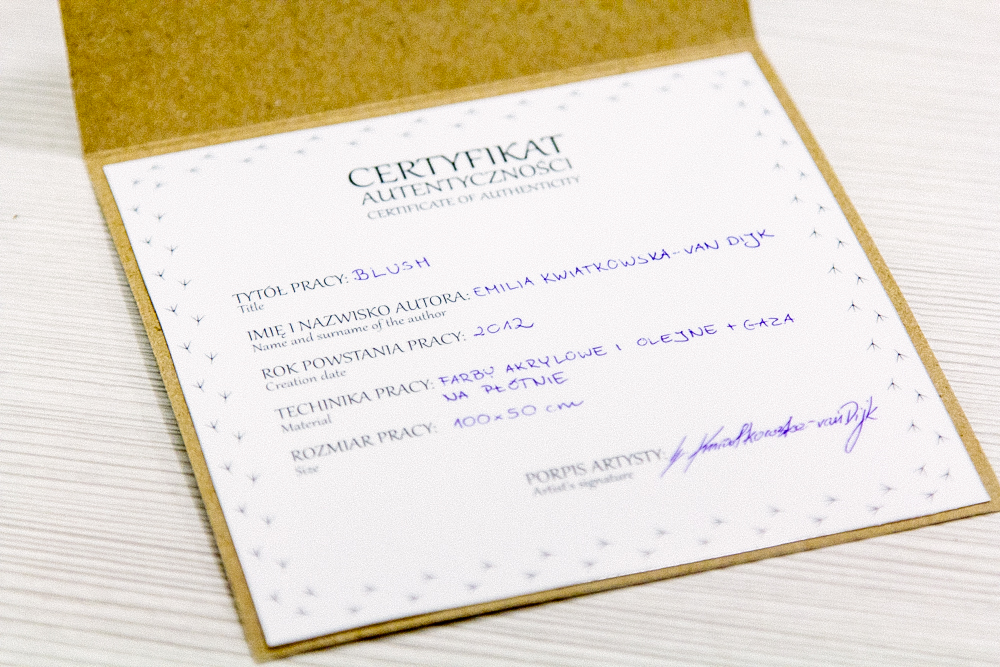 CERTYFIKAT
AUTENTYCZNOŚCI
CERTIFICATE OF AUTHENTICITY
TYTÓŁ PRACY: BLUSH
Title
IMIĘ I NAZWISKO AUTORA: EMILIA KWIATKOWSKA-VAN DIJK
Name and surname of the author
ROK POWSTANIA PRACY: 2012
Creation date
TECHINIKA PRACY: FARBY AKRYLOWE I OLEJNE + GAZA
NA PŁÓTNIE
Material
ROZMIAR PRACY: 100x50 cm
Size
PORPIS ARTYSTY: Kwiatkowska-van Dijk
Artist's signature